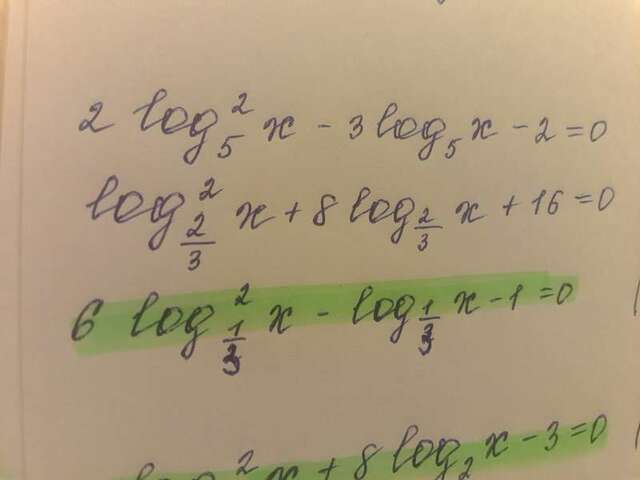 2 log₅² x - 3 log₅ x - 2 = 0
log²_{2/3} x + 8 log_{2/3} x + 16 = 0
6 log²_{1/3} x - log_{1/3} x - 1 = 0
log² x + 8 log₂ x - 3 = 0